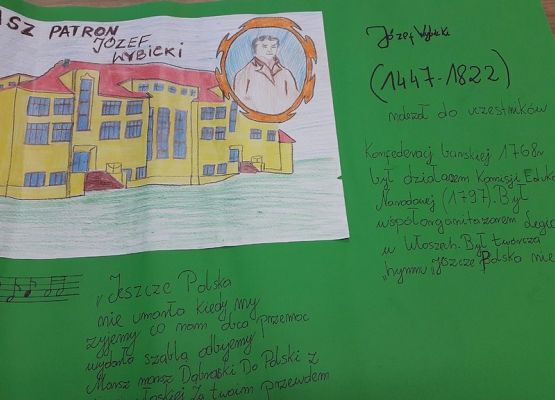 ASZ PATRON
JÓZEF
WYBICKI
Józef Wybicki
(1447-1822)
należał do uczestników
Konfederacji barskiej 1768r
był działaczem Komisji Eduk
Narodowej (1797). Był
współorganizatorem Legio
w Włoszech. Był twórcza
"hymnu „Jszcze Polska nie
„Jeszcze Polska
nie umarła kiedy my
żyjemy co nam obca przemoc
wydała szablą odbijemy
Marsz marsz Dąbroski Do Polski z
Za twoim przewdem